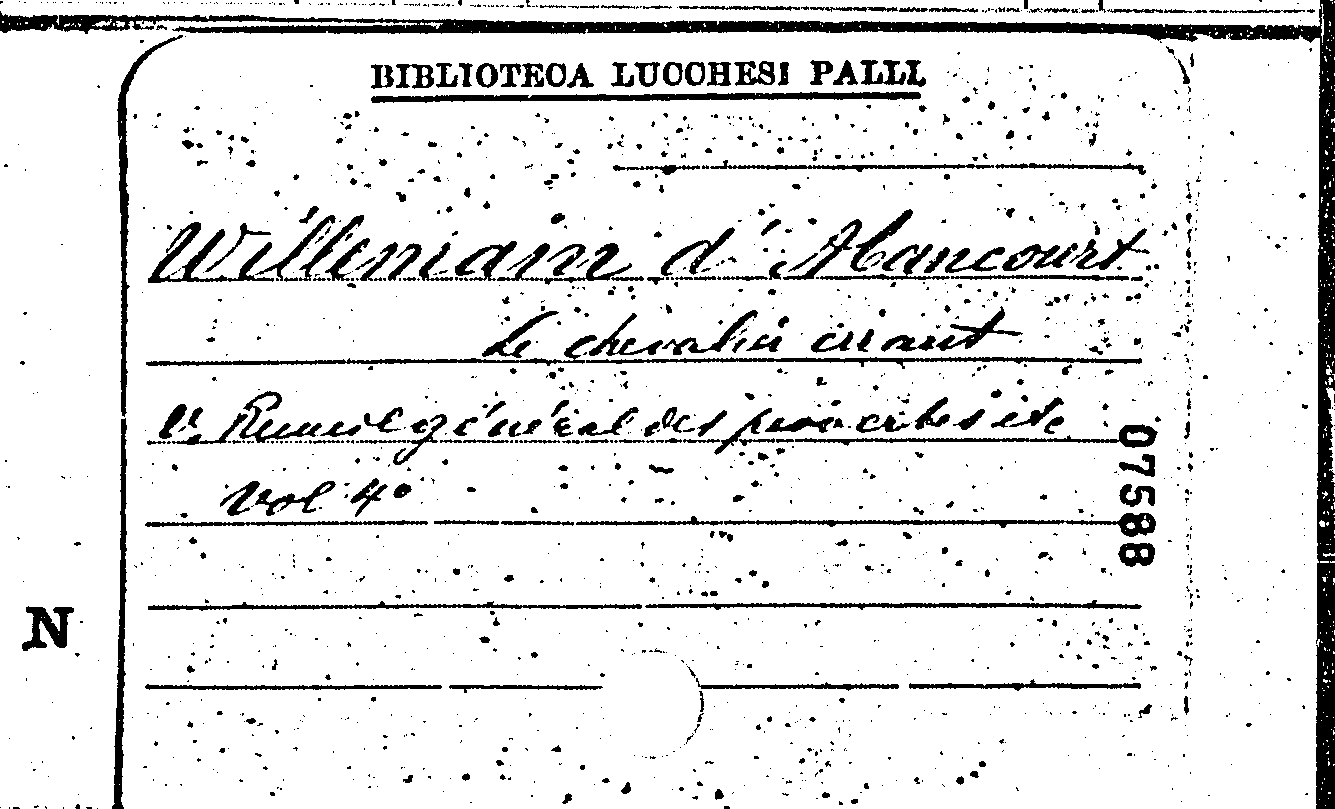 BIBLIOTECA LUCCHESI PALLI
Willemain d'Abancourt
Le chevalier errant
V. Recueil général des proverbes etc
Vol 4º
07588
N